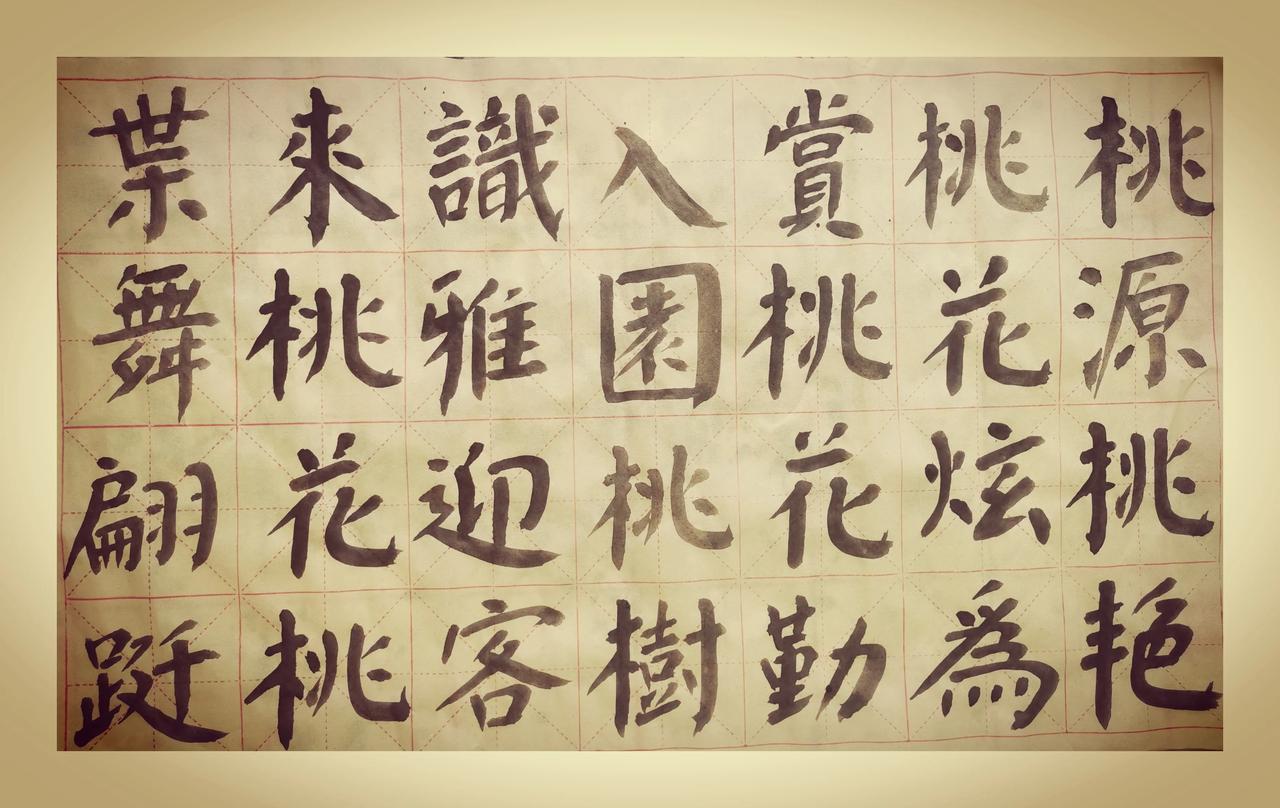 桃源桃艳
桃花炫為
賞桃花勤
入園桃樹
識雅迎客
來桃花桃
枼舞翩跹